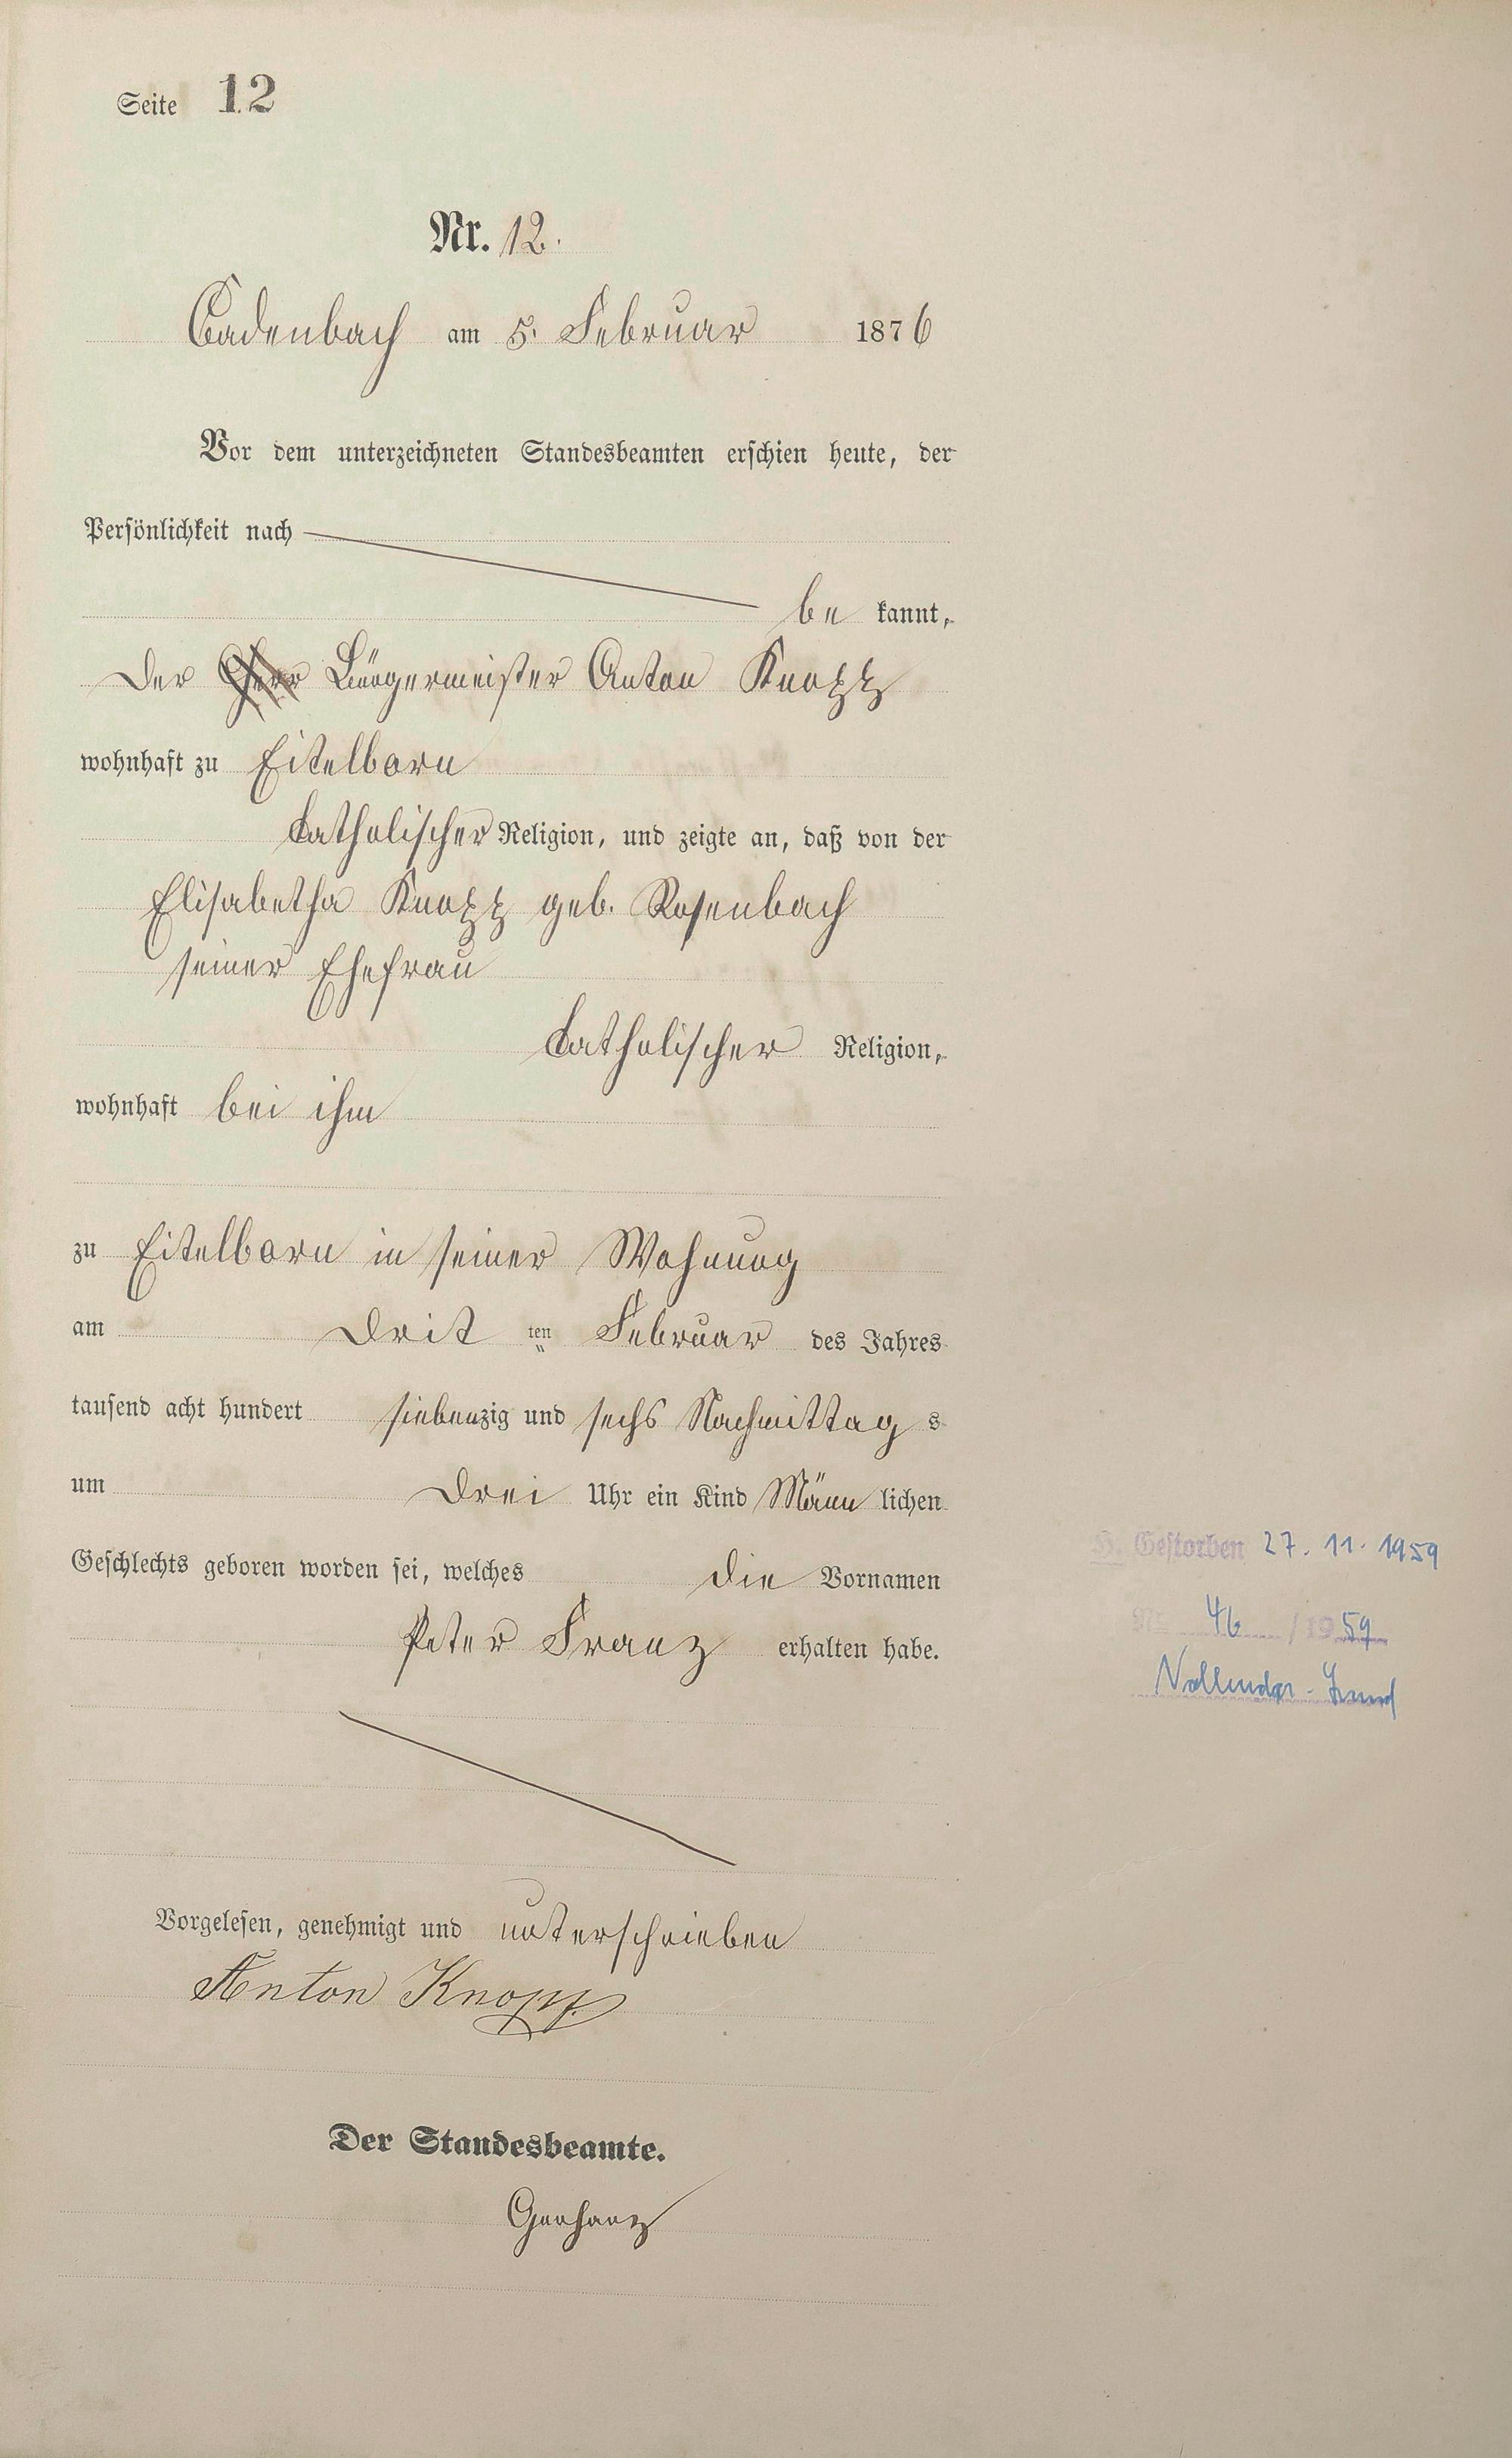 Seite 12
Nr. 12.
Cadenbach am 5. Februar 1876
Vor dem unterzeichneten Standesbeamten erschien heute, der
Persönlichkeit nach
be kannt,
Der Herr Bürgermeister Anton Knopp
wohnhaft zu Eitelborn
katholischer Religion, und zeigte an, daß von der
Elisabetha Knopp geb. Rosenbach
seiner Ehefrau
katholischer Religion,
wohnhaft bei ihm
zu Eitelborn in seiner Wohnung
am Drit ten Februar des Jahres
tausend acht hundert siebenzig und sechs Nachmittag s
um Drei Uhr ein Kind Männ lichen
Geschlechts geboren worden sei, welches die Vornamen
Peter Franz erhalten habe.
H. Gestorben 27. 11. 1959
Nr. 46 / 1959
Vallendar-Land
Vorgelesen, genehmigt und unterschrieben
Anton Knopp
Der Standesbeamte.